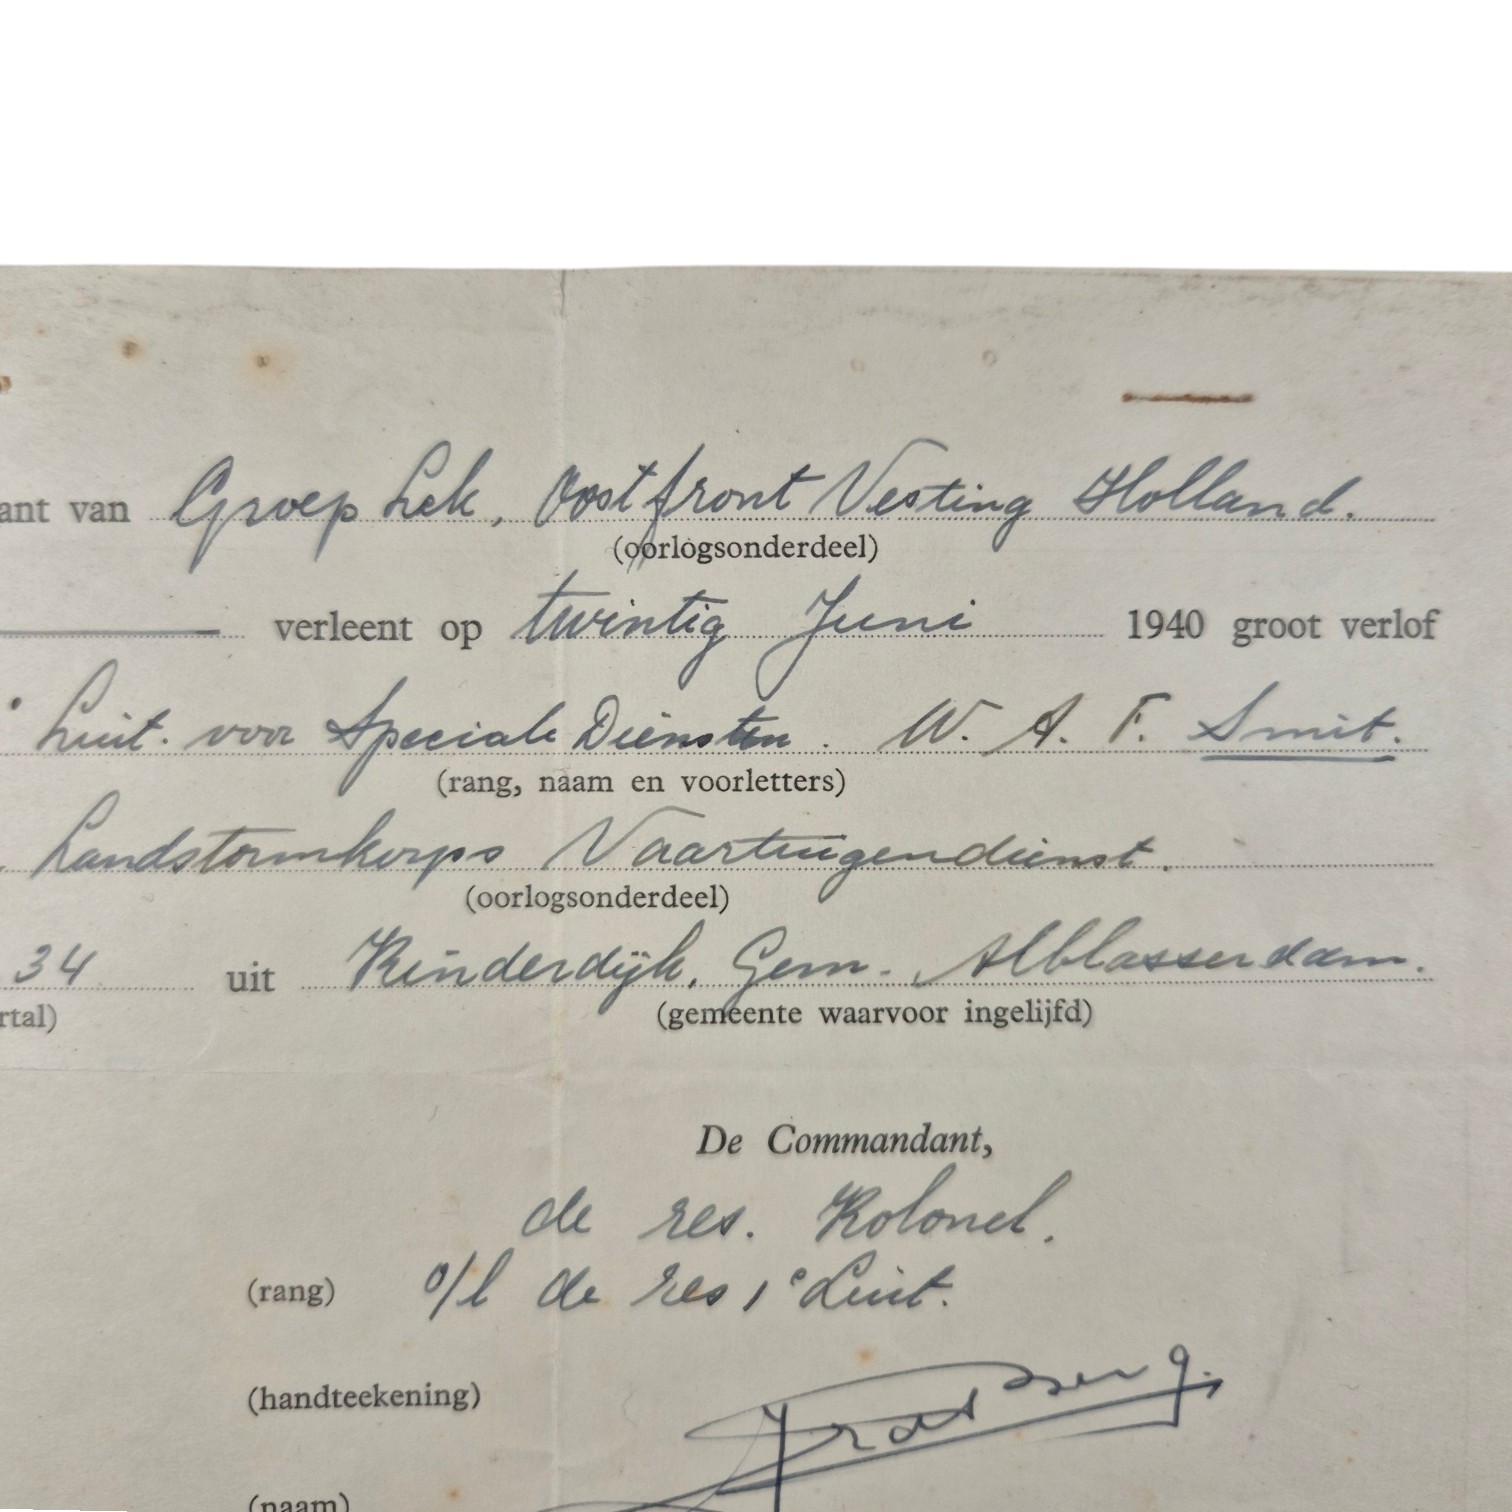 ant van Groep Lek, Oostfront Vesting Holland.
(oorlogsonderdeel)
verleent op twintig Juni 1940 groot verlof
Luit. voor Speciale Diensten. W. A. F. Smit.
(rang, naam en voorletters)
Landstormkorps Vaartuigendienst.
(oorlogsonderdeel)
34 uit Kinderdijk, Gem. Alblasserdam.
rtal) (gemeente waarvoor ingelijfd)
De Commandant,
de res. Kolonel.
(rang) o/l de res 1e Luit.
(handteekening)
(naam)